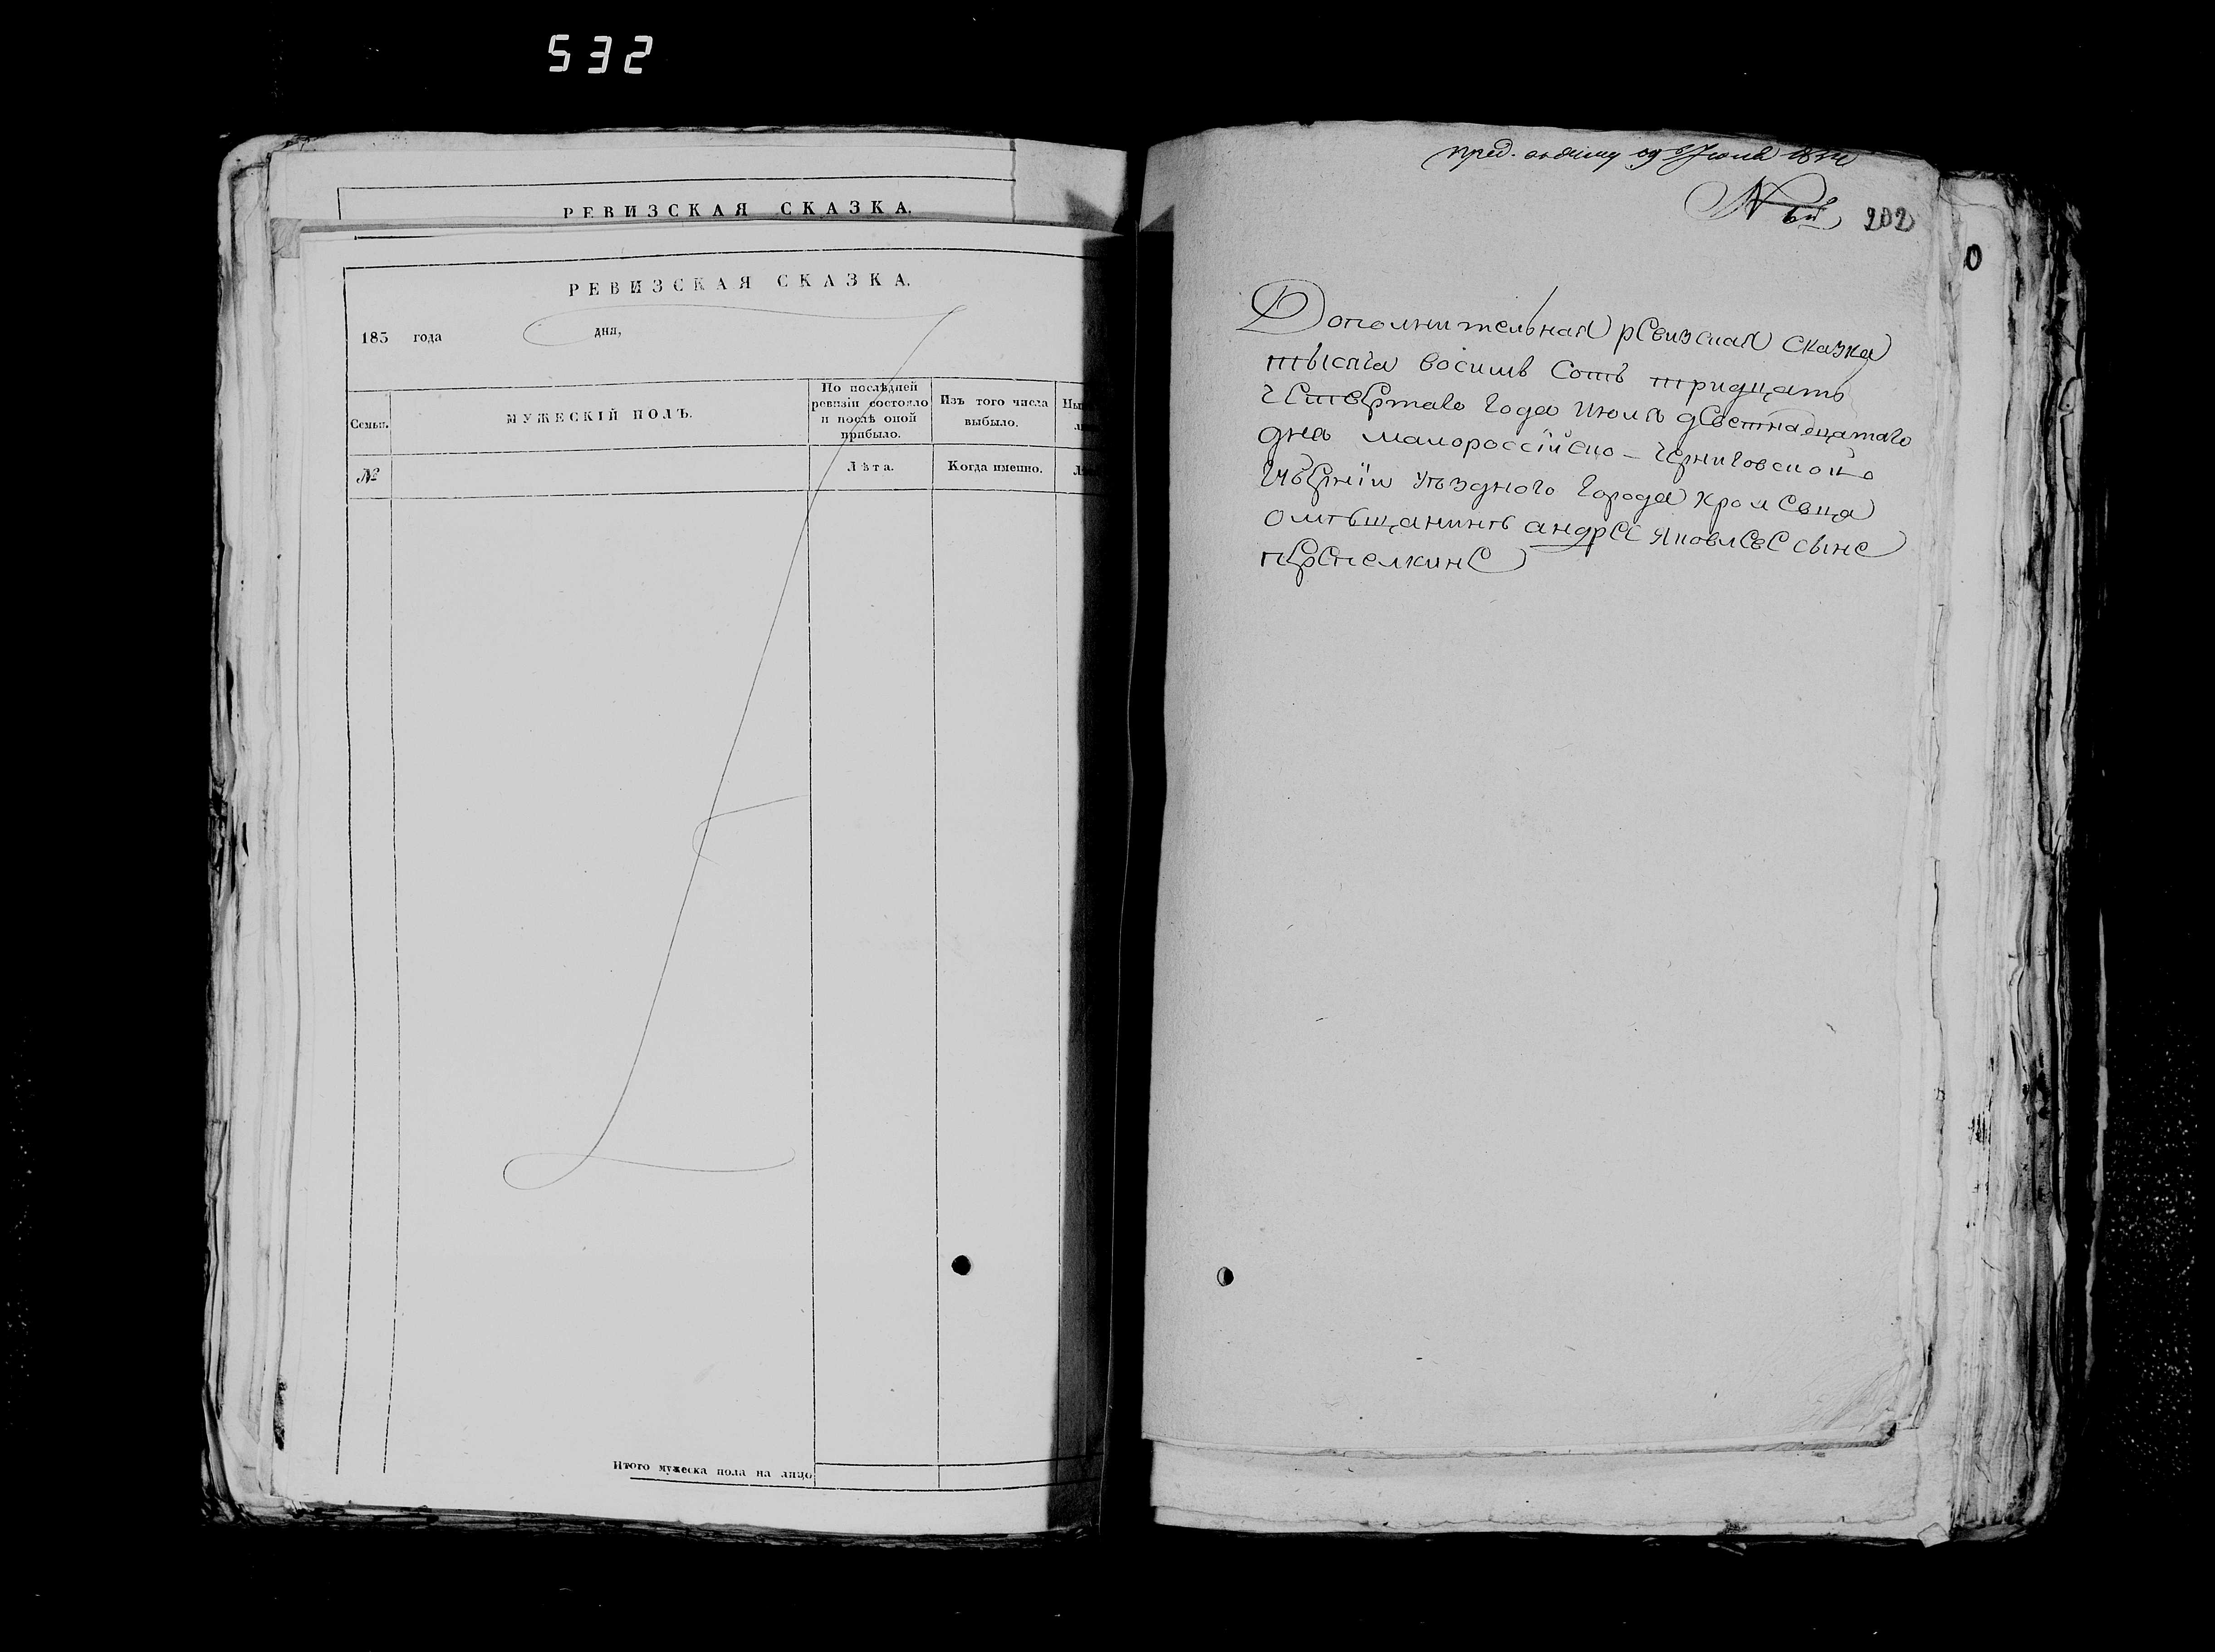 532
РЕВИЗСКАЯ СКАЗКА.
РЕВИЗСКАЯ СКАЗКА.
183 года дня,
Семьи.
МУЖЕСКІЙ ПОЛЪ.
По послѣдней ревизіи состояло и послѣ оной прибыло.
Изъ того числа выбыло.
№
Лѣта.
Когда именно.
Итого мужеска пола на лицо
№ 202
0
Дополнительная ревизская сказка
тысяча восимь Сотъ тридцать
четвертаго года июля двенадцатаго
дня малороссійско-черниговской
губерніи уѣзднаго города кролевца
омѣщанинѣ андрее яковлеве сыне
перепелкине